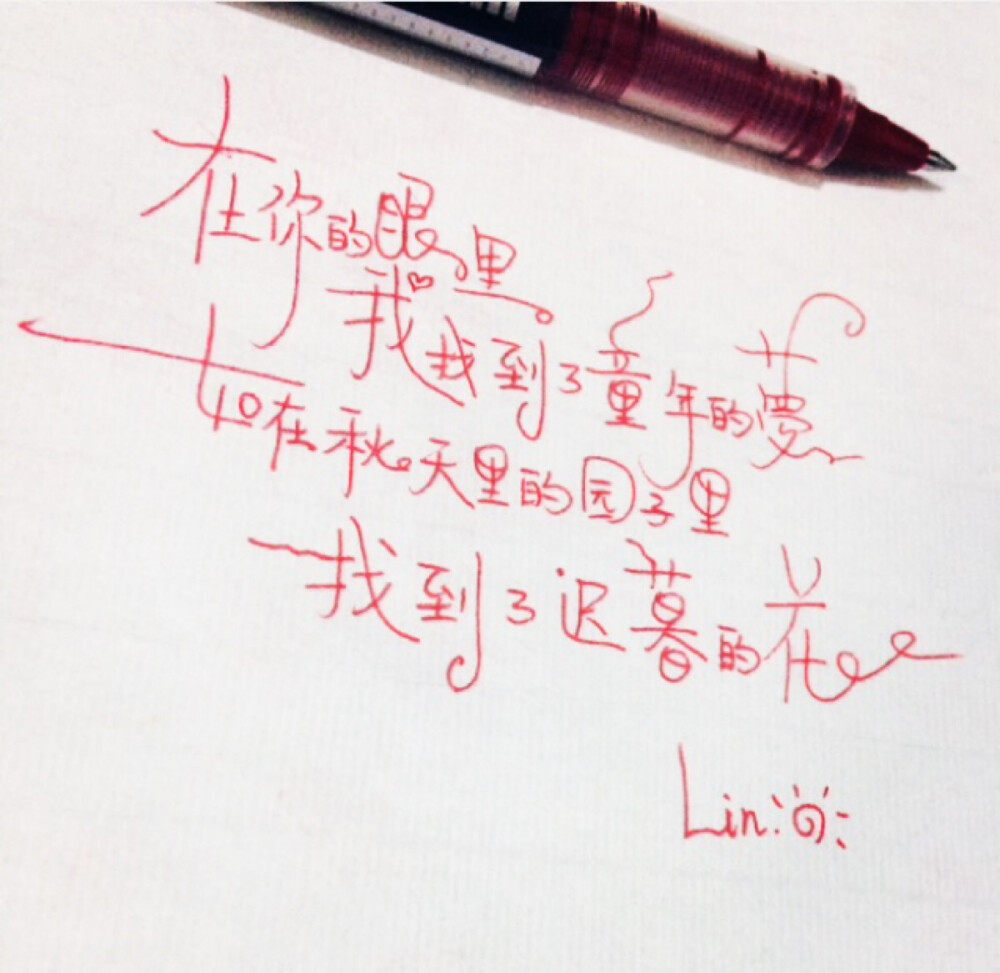 在你的眼里
我找到了童年的夢
如在秋天里的园子里
找到了迟暮的花
Lin